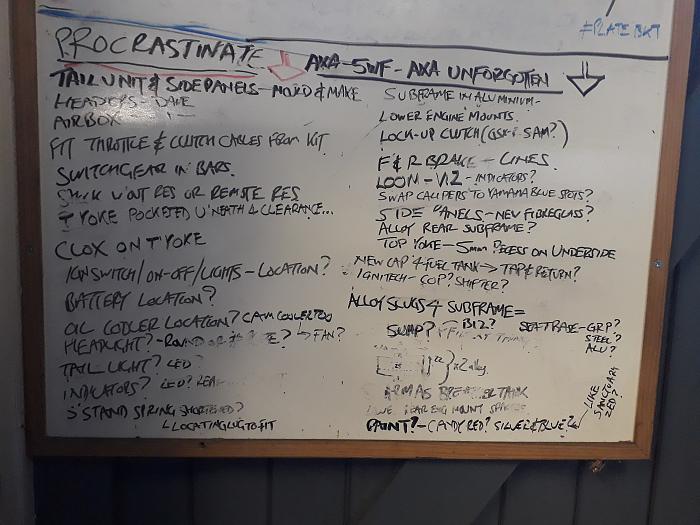 #PLATE BKT
PROCRASTINATE
TAIL UNIT & SIDE PANELS - MOULD & MAKE
HEADERS - DAVE
AIRBOX
FIT THROTTLE & CLUTCH CABLES FROM KIT
SWITCHGEAR IN BARS.
RES OR REMOTE RES
T YOKE POCKETED U'NEATH 4 CLEARANCE...
CLOX ON T'YOKE
IGN SWITCH / ON-OFF / LIGHTS - LOCATION?
BATTERY LOCATION?
OIL COOLER LOCATION? CAM COOLER TOO
HEADLIGHT? - ROUND OR ? → FAN?
TAIL LIGHT? LED?
INDICATORS? LED?
S'STAND SPRING SHORTENED?
LOCATING LUG TO FIT
AXA-5WF - AXA UNFORGOTTEN
SUBFRAME IN ALUMINIUM -
LOWER ENGINE MOUNTS.
LOCK-UP CLUTCH (ASK SAM?)
F & R BRAKE - LINES
LOOM - V.2 - INDICATORS?
SWAP CALIPERS TO YAMAHA BLUE SPOTS?
SIDE PANELS - NEW FIBREGLASS?
ALLOY REAR SUBFRAME?
TOP YOKE - 5mm RECESS ON UNDERSIDE
NEW CAP 4 FUEL TANK → TAP & RETURN?
IGNITECH - COP? SHIFTER?
ALLOY SLUGS 4 SUBFRAME =
SWAP?
SEAT BASE - GRP?
STEEL?
ALU?
x2 alloy
TANK
ENG MOUNT
PAINT? - CANDY RED? SILVER & BLUE?
LIKE
SANCTUARY
ZED?